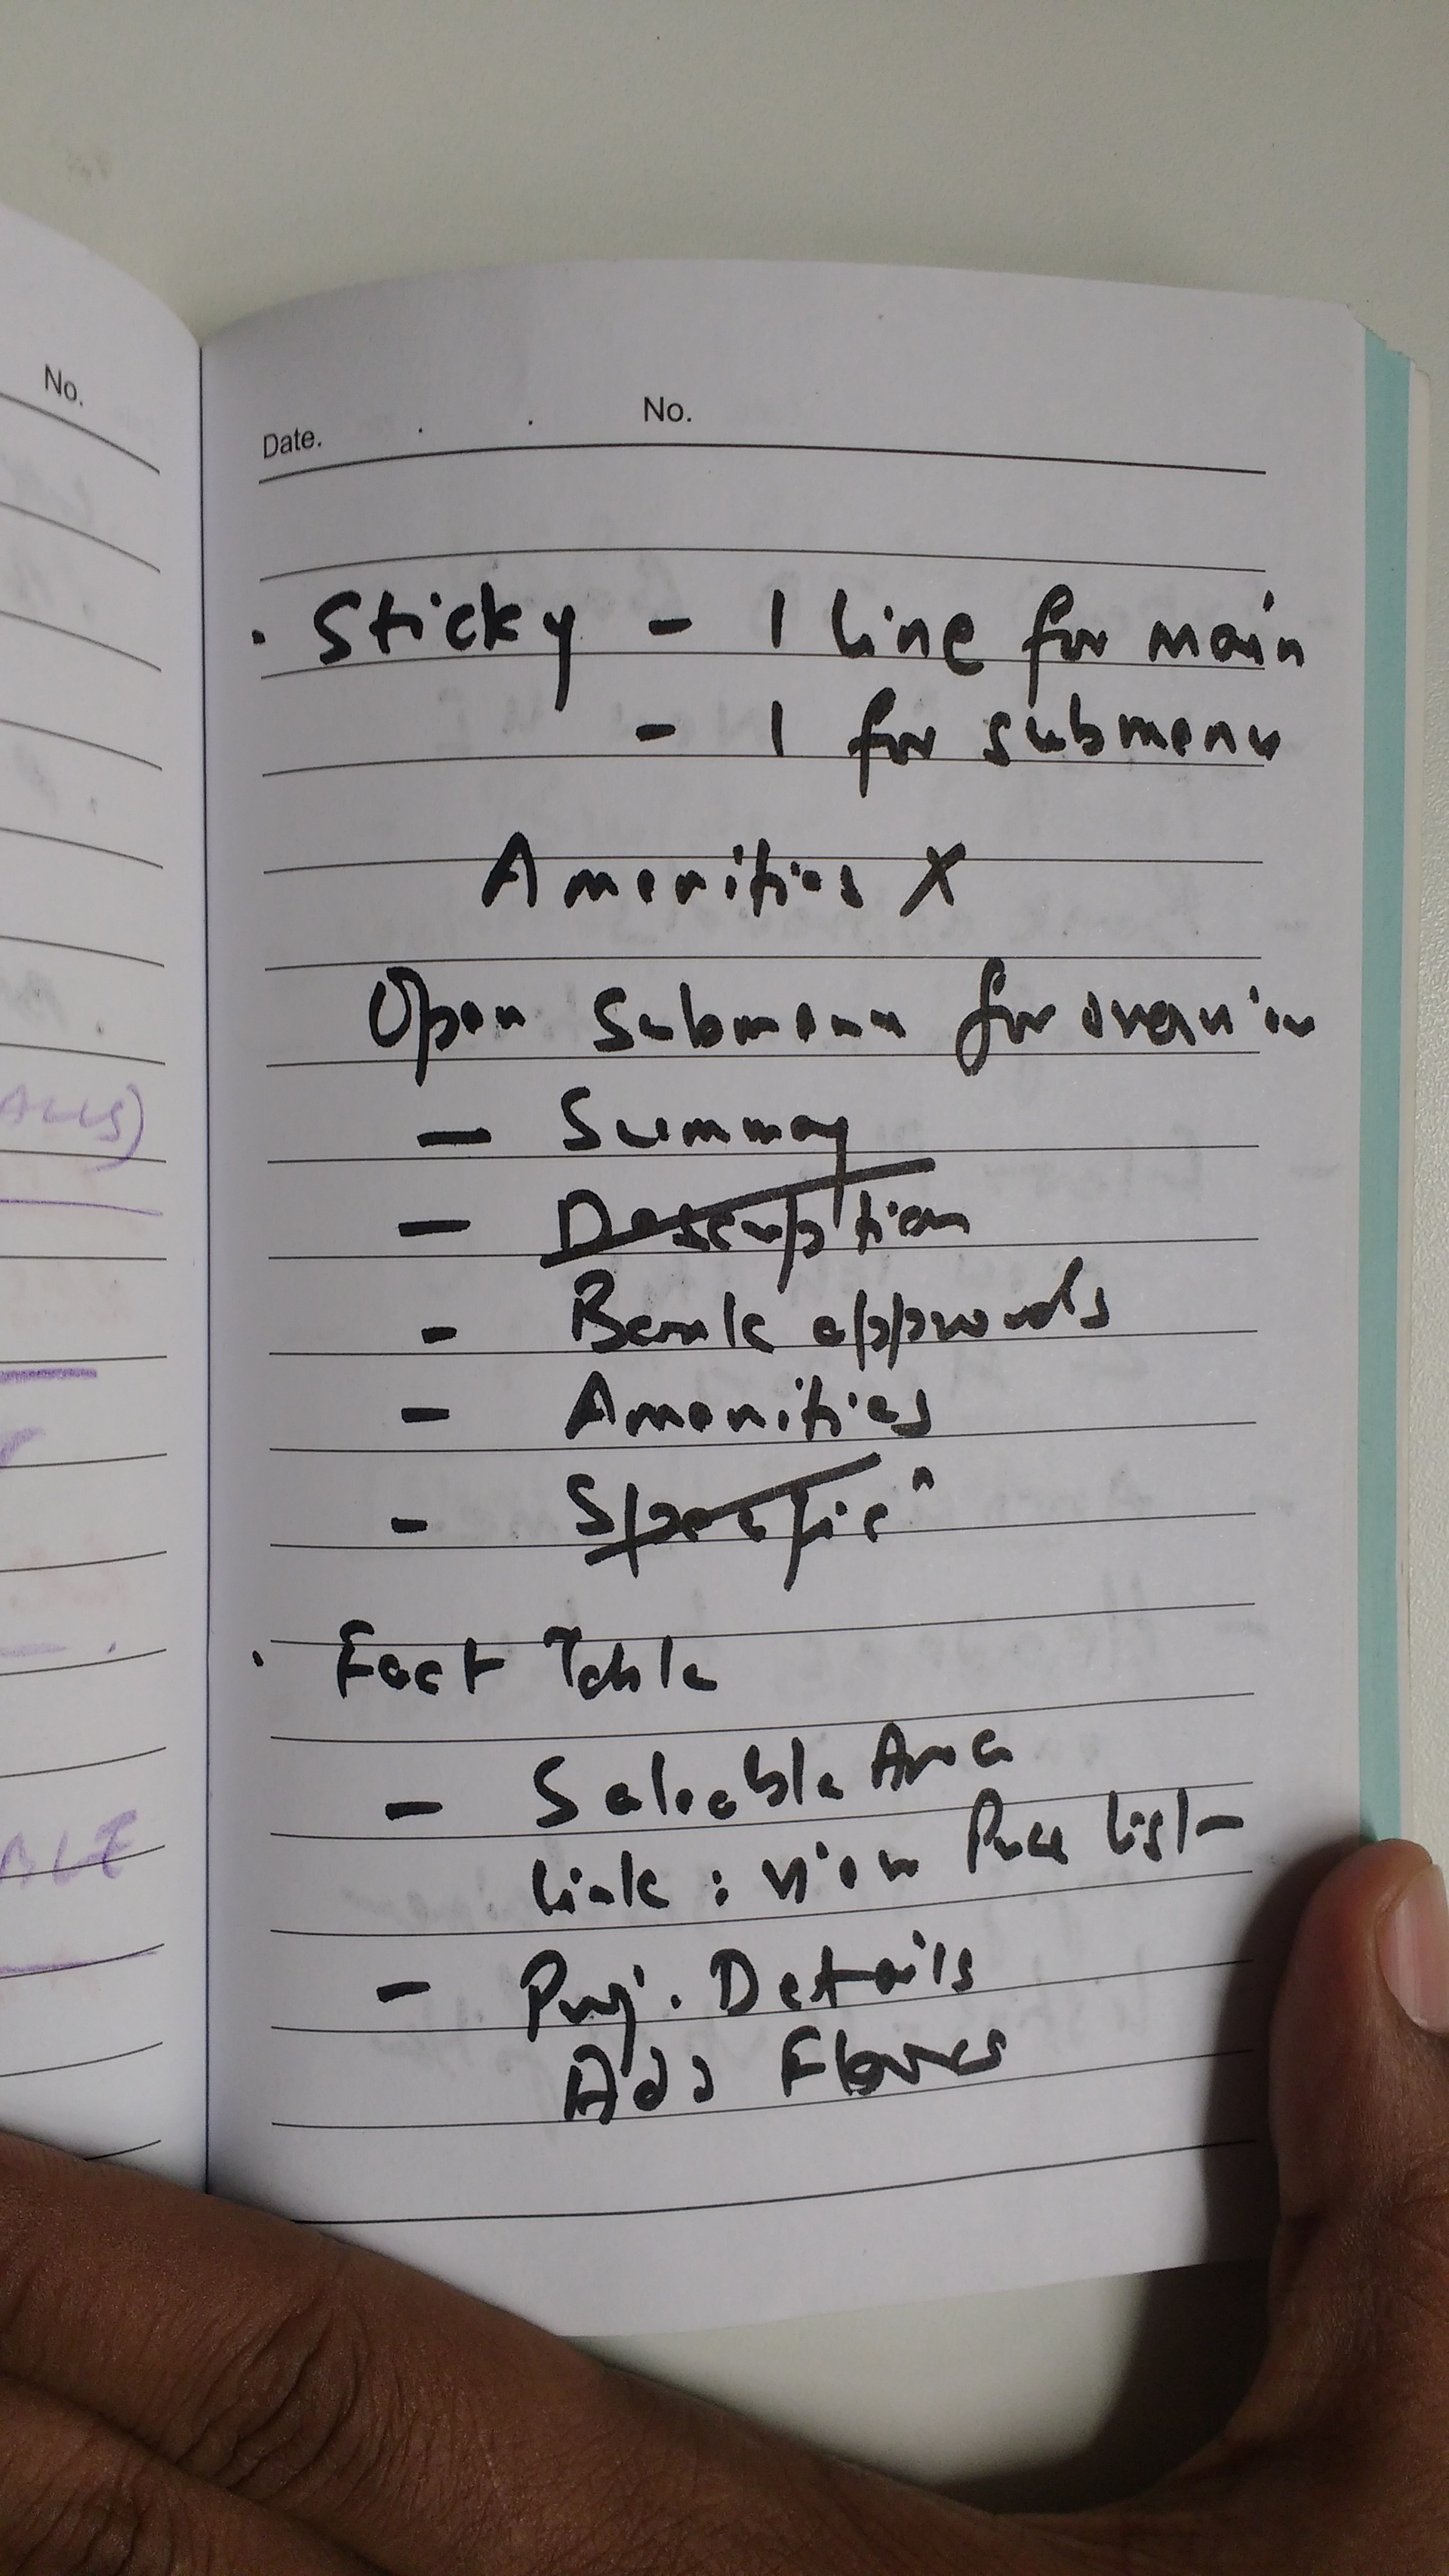 No.
Date. . . No.
. Sticky - 1 line for main
- 1 for submenu
Amenities X
Open Submenu for overview
- Summary
- Description
- Bank approvals
- Amenities
- Specific^n
. Fact Table
- Saleable Area
Link : View Price List
- Proj. Details
Add Floors